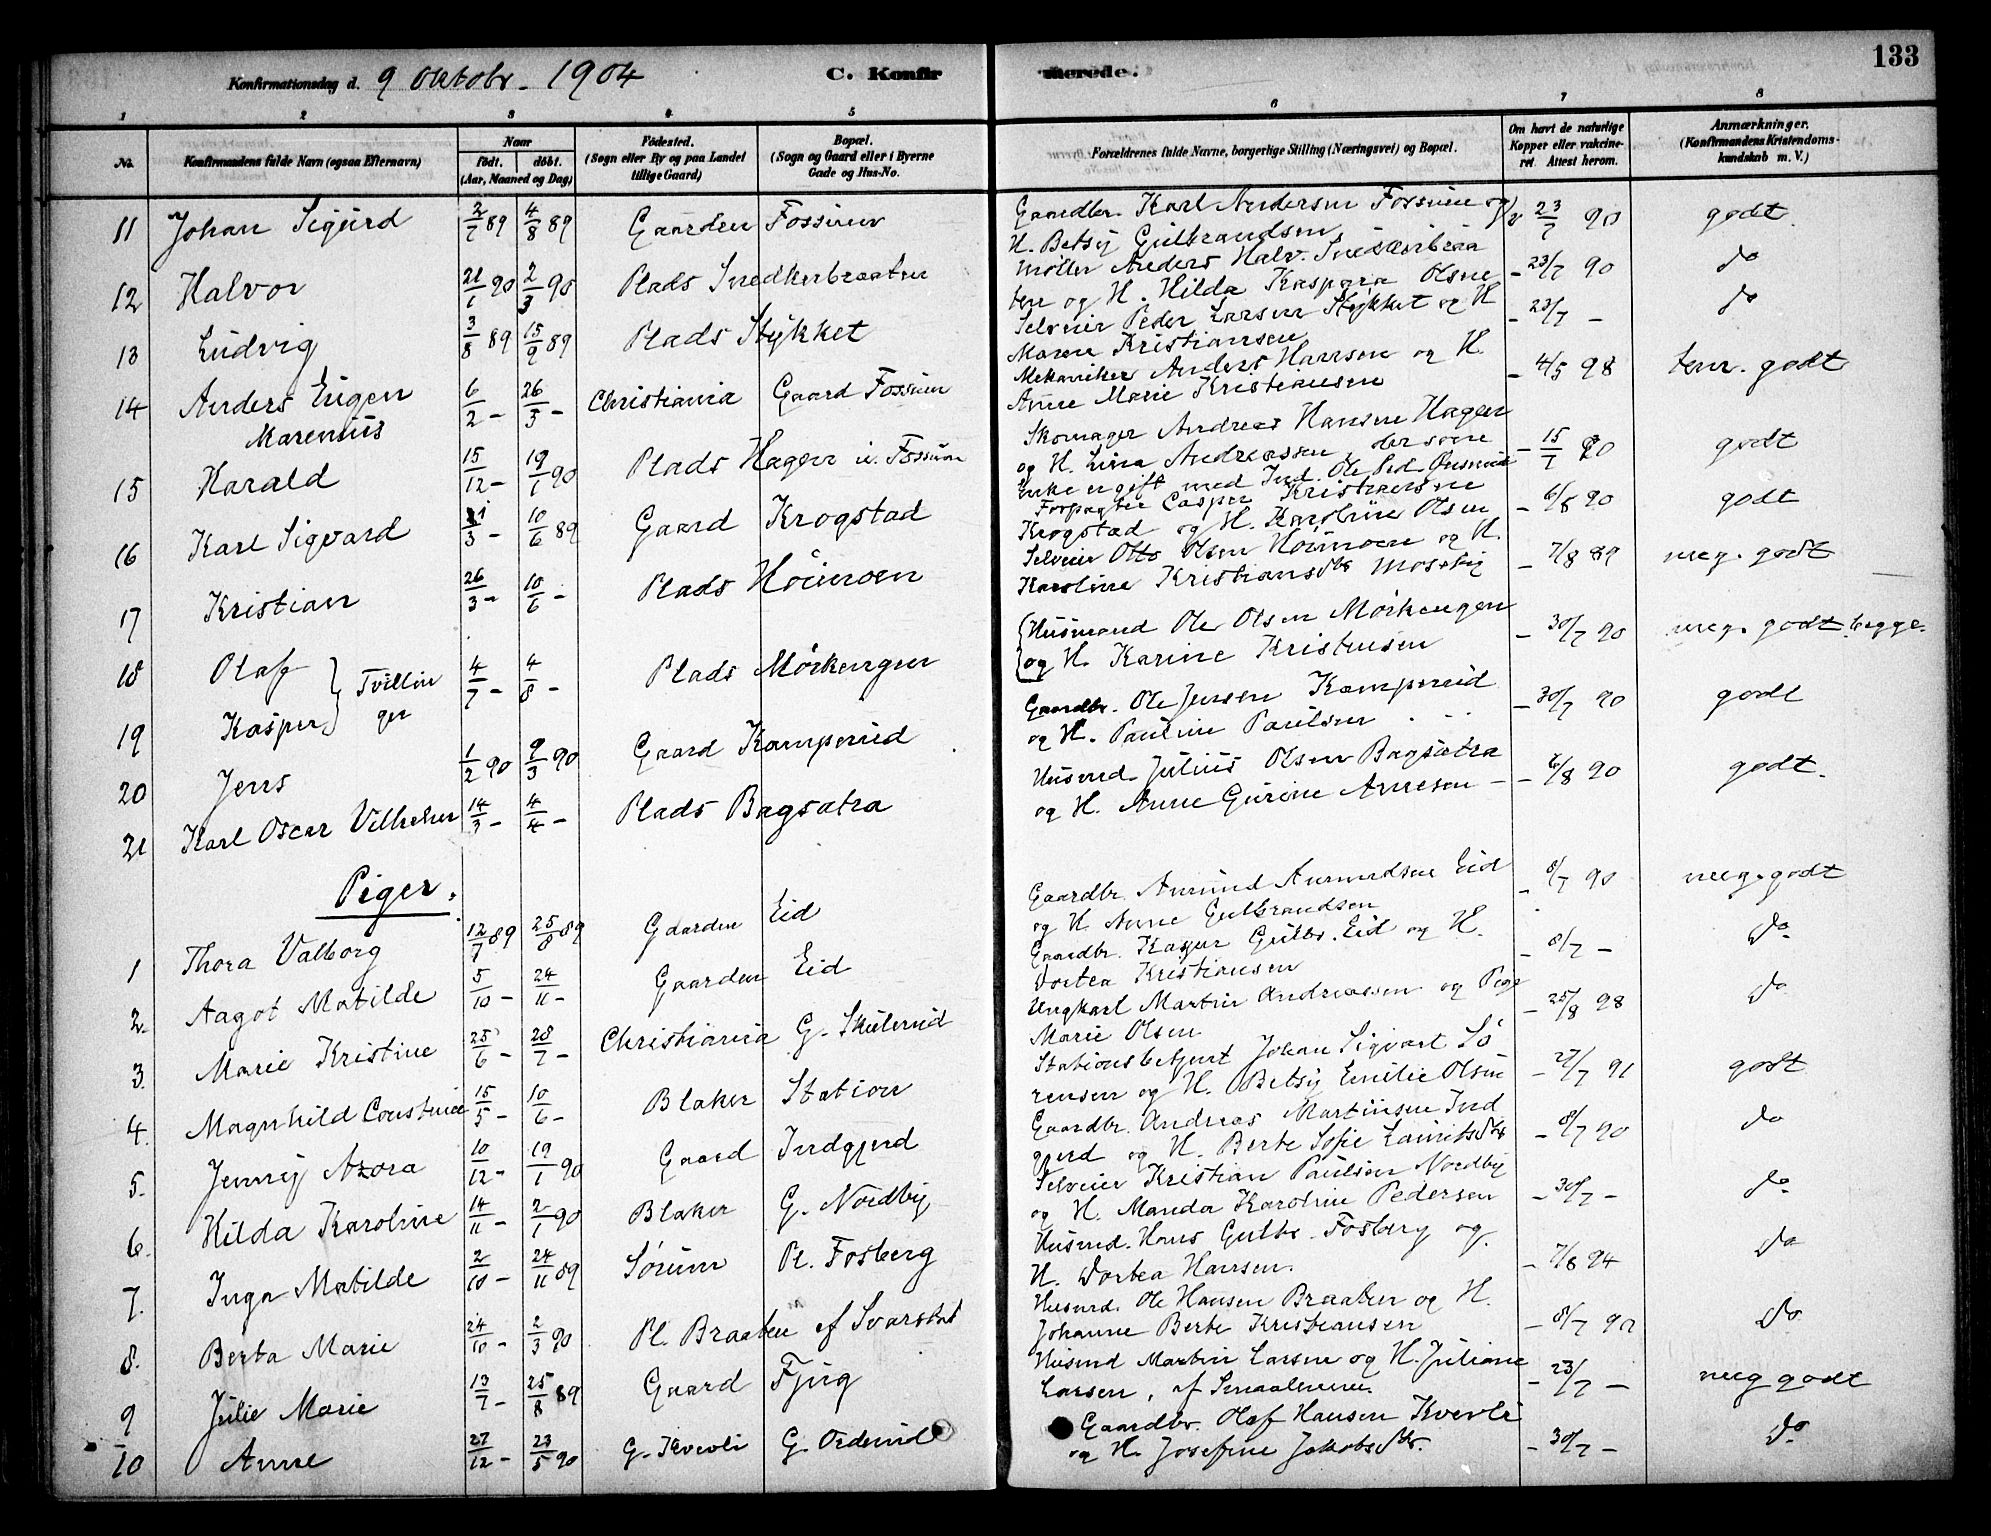 133
Konfirmationsdag d. 9 Oktobr. 1904 C. Konfirmerede.
1 2 3 4 5 6 7 8
No. Konfirmandens fulde Navn (ogsaa Efternavn) Naar født. døbt. (Aar, Maaned og Dag) Fødested. (Sogn eller By og paa Landet tillige Gaard) Bopæl. (Sogn og Gaard eller i Byerne Gade og Hus-No. Forældrenes fulde Navne, borgerlige Stilling (Næringsvei) og Bopæl. Om havt de naturlige Kopper eller vakcineret. Attest herom. Anmærkninger. (Konfirmandens Kristendomskundskab m. V.)
11 Johan Sigurd 2/7 89 4/8 89 Gaarden Fossum Gaardbr. Karl Andersen Fossum og H. Betsy Gulbrandsen 23/7 90 godt.
12 Halvor 21/1 90 2/3 90 Plads Snedkerbraaten Møller Anders Halv. Snekkerbraaten og H. Hilda Kaspara Olsen - 23/7 90 do
13 Ludvig 3/8 89 15/9 89 Plads Stykket Selveier Peder Larsen Stykket og H Maren Kristiansen - 23/7 - do
14 Anders Eugen Marenius 6/2 - 26/3 - Christiania Gaard Fossum Mekaniker Anders Hansen og H. Anne Marie Kristiansen - 4/5 98 tem. godt
15 Harald 15/12 - 19/1 90 Plads Hagen u. Fossum Skomager Andreas Hansen Hagen og H. Lina Andreassen, der som Enke er gift med Ind. Ole Ped. - 15/7 90 godt
16 Karl Sigvard 21/3 - 10/6 89 Gaard Krogstad Forpagter Casper Kristiansen Krogstad og H. Karoline Olsen - 6/8 90 godt
17 Kristian 26/3 - 10/6 - Plads Høimoen Selveier Otto Olsen Høimoen og H. Karoline Kristiansdtr Mosseby - 7/8 89 meg. godt
18 Olaf } Tvillin 4/7 - 4/8 - Plads Mörkengen { Husmand Ole Olsen Mörkengen og H. Karine Kristensen - 30/7 90 meg. godt begge.
19 Kasper } ger
20 Jens 1/2 90 9/3 90 Gaard Kamperud Gaardbr. Ole Jensen Kamperud og H. Pauline Paulsen - 30/7 90 godt
21 Karl Oscar Vilhelm 14/3 - 4/4 - Plads Bagsætra Husmd. Julius Olsen Bagsætra og H. Anne Gurine Arnesen - - 6/8 90 godt.
Piger.
1 Thora Valborg 12/7 89 25/8 89 Gaarden Eid Gaardbr. Amund Amundsen Eid og H. Anne Gulbrandsen - 8/7 90 meg. godt
2. Aagot Matilde 5/10 - 24/11 - Gaarden Eid Gaardbr. Kasper Gulbr. Eid og H. Dortea Kristiansen - 8/7 - Do
3. Marie Kristine 25/6 - 28/7 - Christiania G. Skulerud Ungkarl Martin Andreassen og Pige Marie Olsen - 25/8 98 Do
4. Magnhild Constance 15/5 - 10/6 - Blaker Station Stationsbetjent Johan Sigvart Sörensen og H. Betsy Emilie Olsen - 27/7 91 godt
5. Jenny Azora 10/12 - 19/1 90 Gaard Indgjerd Gaardbr. Andreas Martinsen Indgjerd og H. Berte Sofie Lauritsdtr - 8/7 90 do
6. Hilda Karoline 14/11 - 2/1 90 Blaker G. Nordby Selveier Kristian Paulsen Nordby og H. Manda Karoline Pedersen - 30/7 - do
7. Inga Matilde 2/10 - 24/11 89 Sørum Pl. Fosberg Husmd. Hans Gulbr. Fosberg og H. Dortea Hansen. - 7/8 94 Do
8. Berta Marie 24/10 - 2/3 90 Pl. Braaten af Svarstad Husmd. Ole Hansen Braaten og H. Johanne Berte Kristiansen - 8/7 90 Do
9 Julie Marie 13/7 - 25/8 89 Gaard Fjug Husmd Martin Larsen og H. Juliane Larsen, af Smaalenene - 23/7 - meg godt
10 Anne 27/12 - 23/5 90 G. Kvevli G. Ordmid Gaardbr. Olaf Hansen Kvevli og H. Josefine Jakobsdtr. - 30/7 - Do